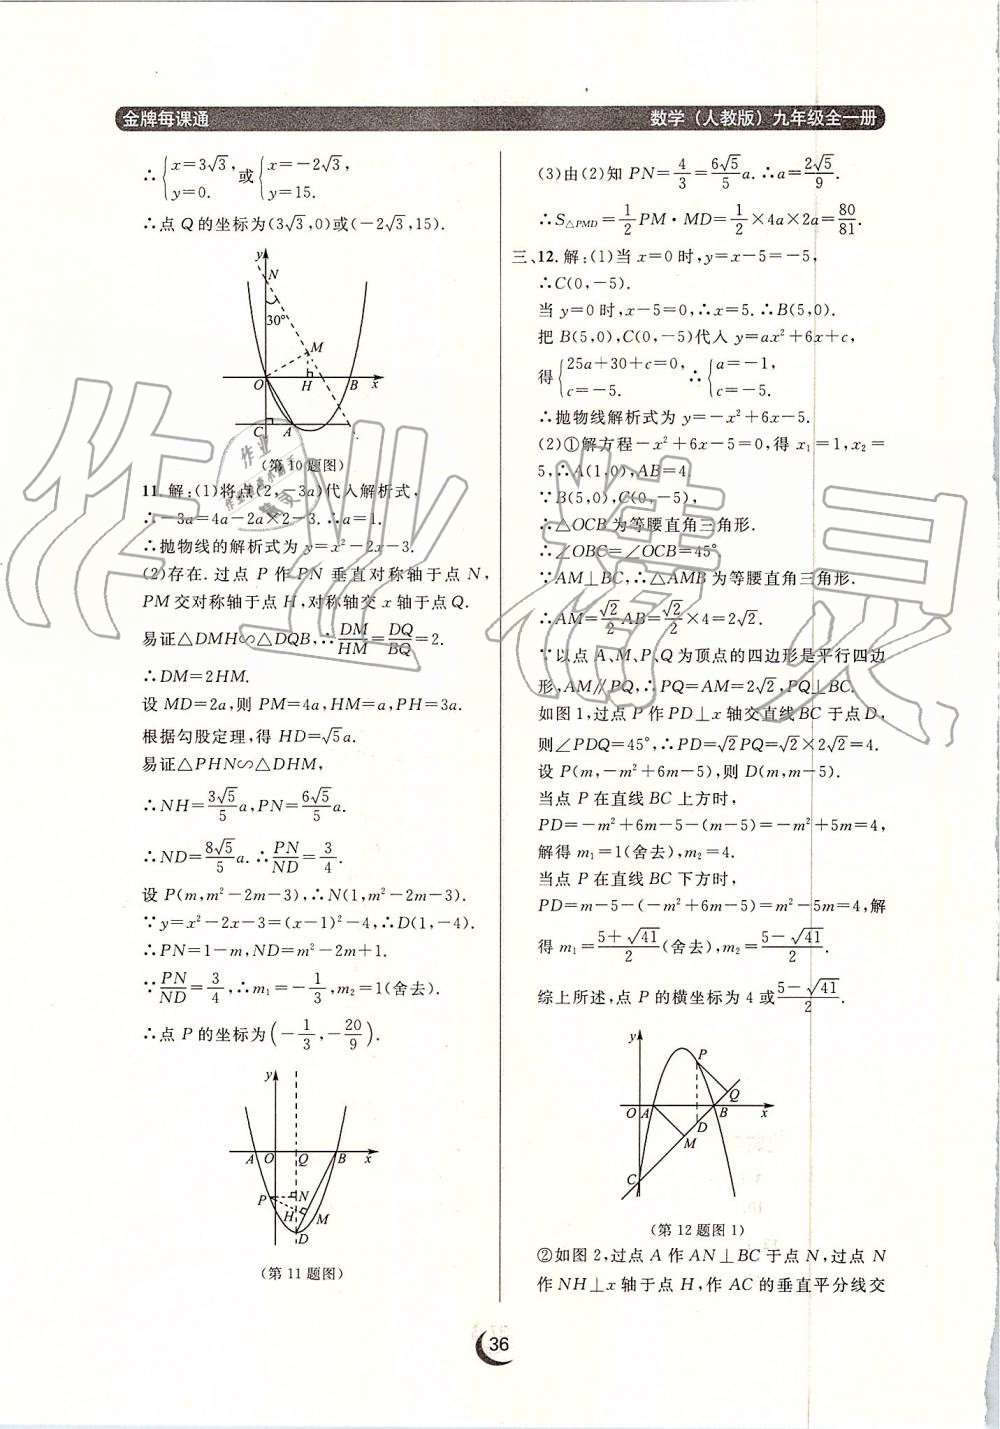 金牌每课通
数学（人教版）九年级全一册
∴{x=3√3, y=0. 或{x=-2√3, y=15.
∴点 Q 的坐标为(3√3,0)或(-2√3,15).
y
N
30°
M
O H B x
C A
(第10题图)
11.解:(1)将点(2,-3a)代入解析式,
∴-3a=4a-2a×2-3.∴a=1.
∴抛物线的解析式为 y=x²-2x-3.
(2)存在.过点 P 作 PN 垂直对称轴于点 N,
PM交对称轴于点 H,对称轴交 x 轴于点 Q.
易证△DMH∽△DQB,∴DM/HM=DQ/BQ=2.
∴DM=2HM.
设 MD=2a,则 PM=4a,HM=a,PH=3a.
根据勾股定理,得 HD=√5a.
易证△PHN∽△DHM,
∴NH=3√5/5a,PN=6√5/5a.
∴ND=8√5/5a.∴PN/ND=3/4.
设 P(m,m²-2m-3),∴N(1,m²-2m-3).
∵y=x²-2x-3=(x-1)²-4,∴D(1,-4).
∴PN=1-m,ND=m²-2m+1.
∵PN/ND=3/4,∴m₁=-1/3,m₂=1(舍去).
∴点 P 的坐标为(-1/3,-20/9).
y
A O Q B x
P N
H M
D
(第11题图)
(3)由(2)知 PN=4/3=6√5/5a.∴a=2√5/9.
∴S△PMD=1/2PM·MD=1/2×4a×2a=80/81.
三、12.解:(1)当 x=0 时,y=x-5=-5,
∴C(0,-5).
当 y=0 时,x-5=0,∴x=5.∴B(5,0).
把 B(5,0),C(0,-5)代入 y=ax²+6x+c,
得{25a+30+c=0, c=-5. ∴{a=-1, c=-5.
∴抛物线解析式为 y=-x²+6x-5.
(2)①解方程-x²+6x-5=0,得 x₁=1,x₂=
5,∴A(1,0),AB=4
∵B(5,0),C(0,-5),
∴△OCB 为等腰直角三角形.
∴∠OBC=∠OCB=45°.
∵AM⊥BC,∴△AMB 为等腰直角三角形.
∴AM=√2/2AB=√2/2×4=2√2.
∵以点 A、M、P、Q 为顶点的四边形是平行四边
形,AM∥PQ,∴PQ=AM=2√2,PQ⊥BC.
如图1,过点 P 作 PD⊥x 轴交直线 BC 于点 D,
则∠PDQ=45°,∴PD=√2PQ=√2×2√2=4.
设 P(m,-m²+6m-5),则 D(m,m-5).
当点 P 在直线 BC 上方时,
PD=-m²+6m-5-(m-5)=-m²+5m=4,
解得 m₁=1(舍去),m₂=4.
当点 P 在直线 BC 下方时,
PD=m-5-(-m²+6m-5)=m²-5m=4,解
得 m₁=5+√41/2(舍去),m₂=5-√41/2.
综上所述,点 P 的横坐标为4或5-√41/2.
y
P
Q
O A B x
D
M
C
(第12题图1)
②如图2,过点 A 作 AN⊥BC 于点 N,过点 N
作 NH⊥x 轴于点 H,作 AC 的垂直平分线交
36
作业精灵